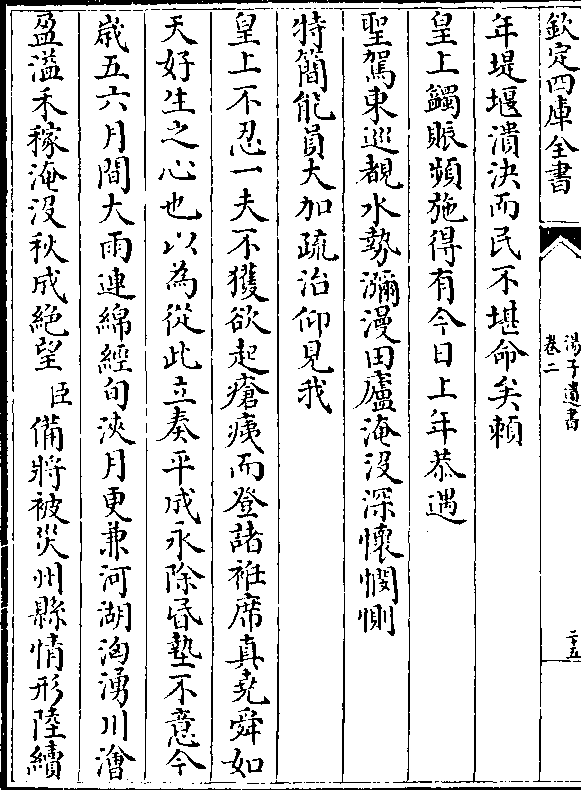 欽定四庫全書
湯子遺書
卷二
二十五
年堤堰潰決而民不堪命矣賴
皇上蠲賑頻施得有今日上年恭遇
聖駕東巡覩水勢瀰漫田廬淹没深懷憫惻
特簡能員大加疏治仰見我
皇上不忍一夫不獲欲起瘡痍而登諸袵席真堯舜如
天好生之心也以為從此立奏平成永除昏墊不意今
歲五六月間大雨連綿經旬浹月更兼河湖洶湧川澮
盈溢禾稼淹没秋成絶望臣備將被災州縣情形陸續